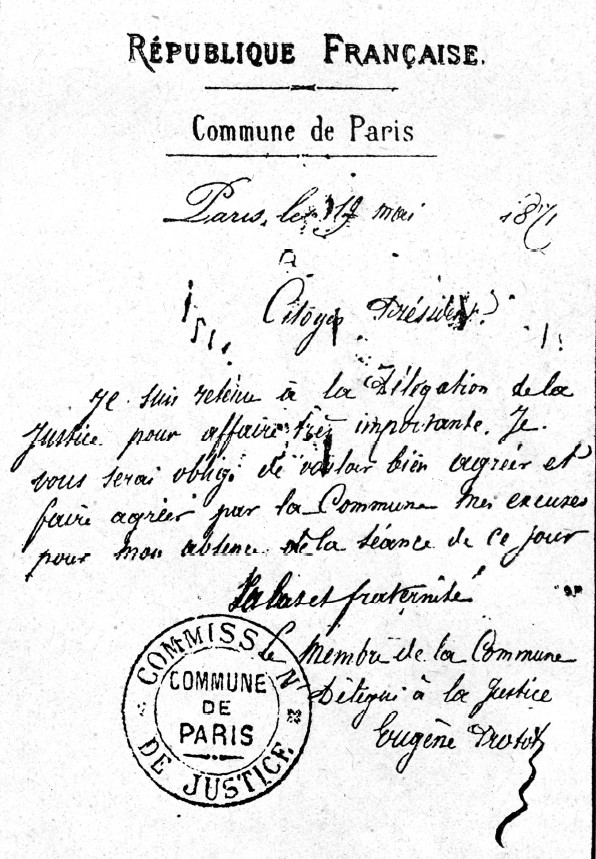 RÉPUBLIQUE FRANÇAISE.
Commune de Paris
Paris, le 19 mai 1871
Citoyen Président
Je suis retenu à la Délégation de la
Justice pour affaire très importante. Je
vous serai oblig. de vouloir bien agréer et
faire agréer par la Commune mes excuses
pour mon absence de la séance de ce jour
Salut et fraternité
Le Membre de la Commune
Délégué à la Justice
Eugène Protot
COMMISS N
DE JUSTICE
COMMUNE
DE
PARIS